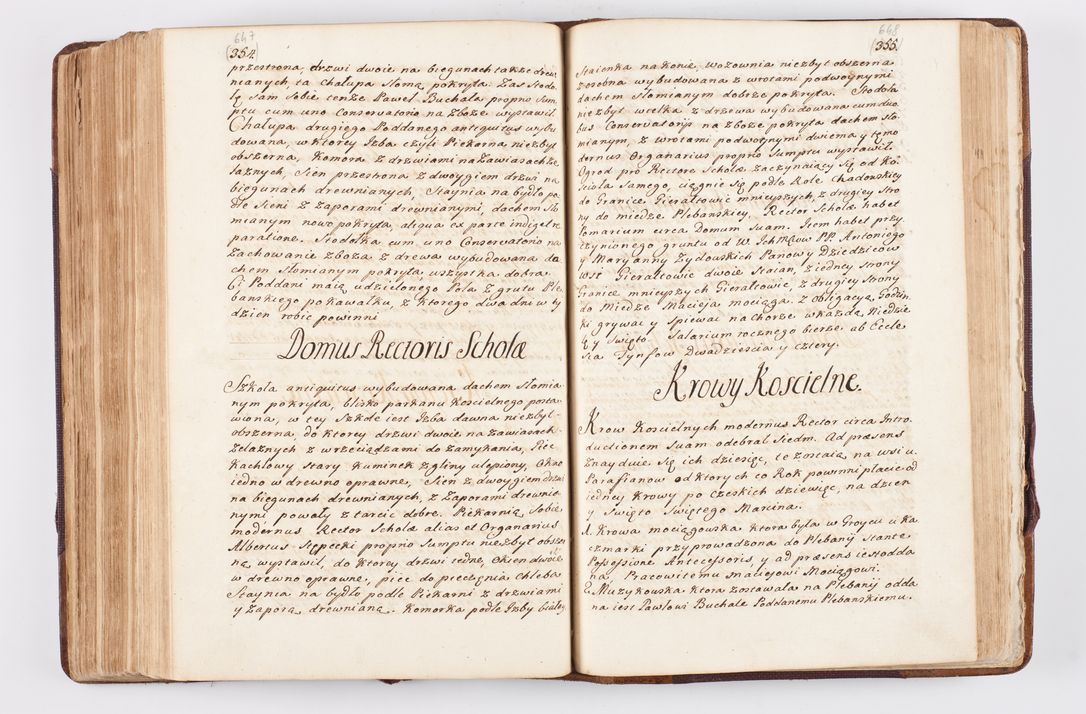 647
(354)
przestrona, drzwi dwoie na biegunach także drew
nianych, ta chałupa słomą pokryta. Zaś Stodo
łę sam sobie tenże Paweł Buchała proprio Sum
ptu cum uno Conservatorio na zboże wystawił.
Chałupa drugiego Poddanego antiquitus wybu
dowana, w ktorey Izba czyli Piekarnia niezbyt
obszerna, Komora z drzwiami na zawiasach że
laznych, Sien przestrona z dwoygiem drzwi na
biegunach drewnianych, Staynia na bydło po
dle Sieni z zaporami drewnianymi, dachem sło
mianym nowo pokryta, aliqua ex parte indiget re
paratione. Stodołka cum uno Conservatorio na
zachowanie zboża z drewa wybudowana da
chem słomianym pokryta wszystka dobra.
Ci Poddani maią udzielonego Pola z grutu Ple
banskiego po kawałku, z ktorego dwa dni w ty
dzien robic powinni
Domus Rectoris Scholæ
Szkoła antiquitus wybudowana dachem słomia
nym pokryta, blisko parkanu Koscielnego posta
wiona, w tey Szkole iest Izba dawna niezbyt
obszerna, do ktorey drzwi dwoie na zawiasach
żelaznych z wrzeciądzami do zamykania, Piec
kachlowy stary kuminek z gliny ulepiony, Okno
iedno w drewno oprawne, Sien z dwoygiem drzwi
na biegunach drewnianych, z zaporami drewnia
nymi powały z tarcic dobre. Piekarnią Sobie
modernus Rector Scholæ alias et Organarius
Albertus Stępecki proprio Sumptu niezbyt obszer
ną wystawił, do ktorey drzwi iedne, Okien dwoie
w drewno oprawne, piec do pieczenia chleba
Staynia na bydło podle Piekarni z drzwiami
y zaporą drewnianą. Komorka podle Izby białey
648
(355)
Staienka na konie, wozownia niezbyt obszerna
zosobna wybudowana z wrotami podwoynymi
dachem słomianym dobrze pokryta. Stodoła
niezbyt wielka z drzewa wybudowana cum duo
bus Conservatoriis na zboże pokryta dachem sło
mianym, z wrotami podwoynymi dwiema, y tę mo
dernus Organarius proprio Sumptu wystawił.
Ogrod pro Rectore Scholæ zaczynaiący się od Ko
scioła Samego, ciągnie się podle Role Chadowskiey
do Granic Gierałtowic mnieyszych, z drugiey stro
ny do miedze Plebanskiey. Rector Scholæ habet
Pomarium circa Domum Suam. Item habet przy
czynionego gruntu od W. Ichmciow PP. Antoniego
y Maryanny Zydłowskich Panowy Dziedzicow
wsi Gierałtowic dwoie Staian, z iedney strony
Granic mnieyszych Gierałtowic, z drugiey strony
do Miedze Macieja mociąga. z obligacyą, Godzin
ki grywac y spiewac na Chorze w każdą Niedzie
lę y Swięto. Salarium rocznego bierze ab Eccle
sia Tynfow Dwadziescia y cztery.
Krowy Koscielne.
Krow Koscielnych modernus Rector circa Intro
ductionem Suam odebrał Siedm. Ad præsens
znayduie się ich dziesięc, te zostaią na wsi u
Parafianow od ktorych co Rok powinni płacic od
iedney Krowy po Czeskich dziewięc, na dzien
y Swięto Swiętego Marcina.
1. Krowa mociągowska ktora była w Groycu u Ka
czmarki przyprowadzona do Plebanij stante
Possessione Antecessoris, y ad præsens iest odda
na, Pracowitemu Maciejowi Mociągowi.
2. Muzykowska ktora zostawała na Plebanij odda
na iest Pawłowi Buchale Poddanemu Plebanskiemu.